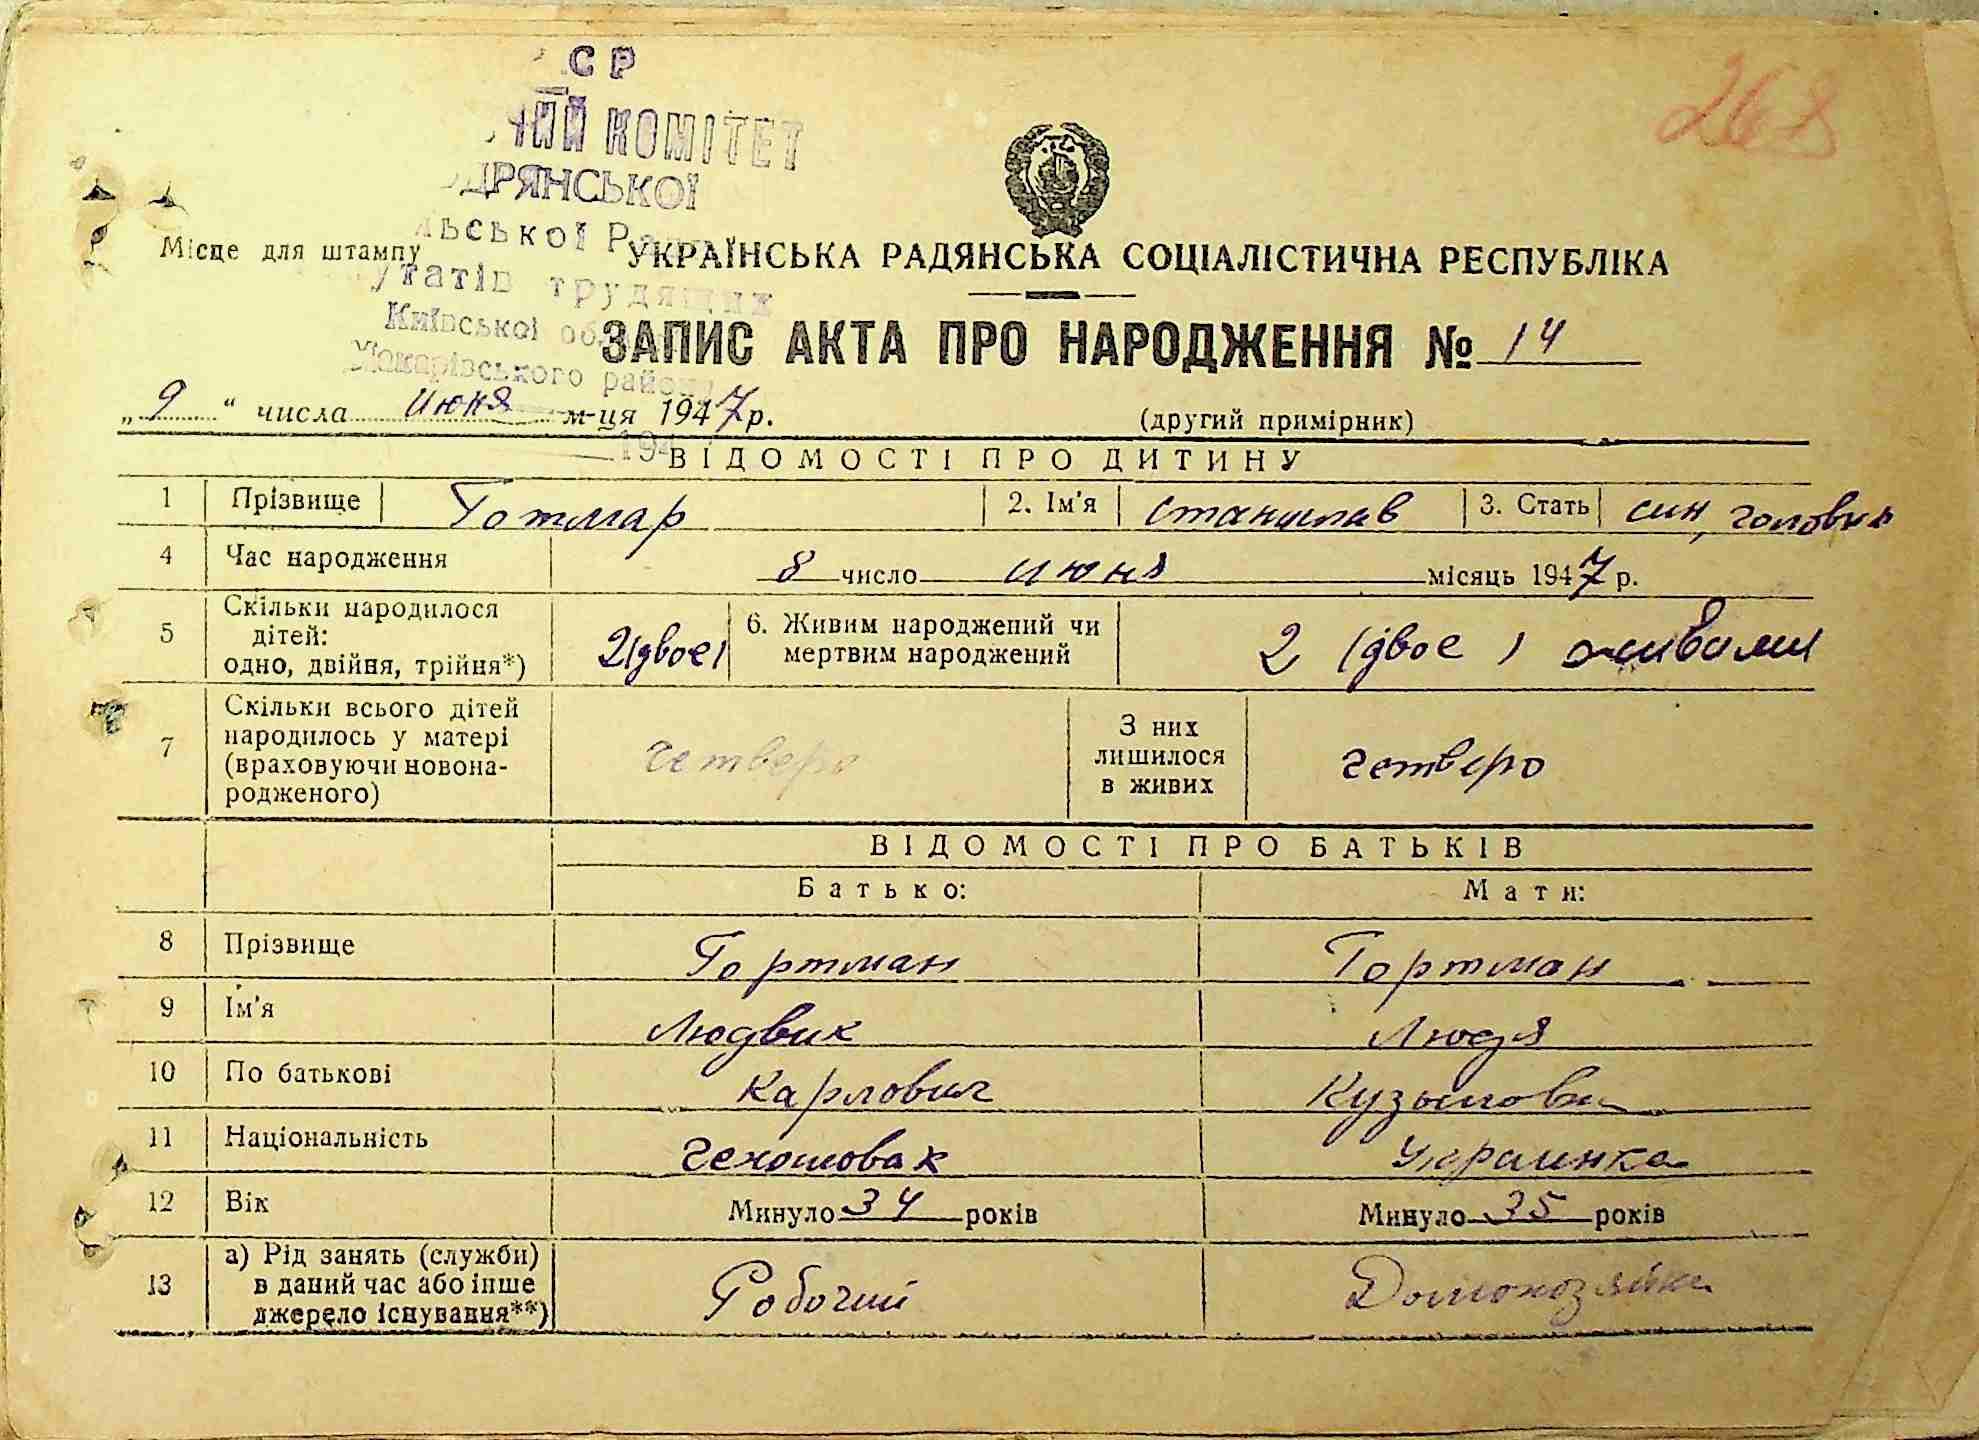 268
СР
ИЙ КОМІТЕТ
ДРЯНСЬКОЇ
льської Ра
утатів трудящих
Київської об
Макарівського району
194
Місце для штампу
УКРАЇНСЬКА РАДЯНСЬКА СОЦІАЛІСТИЧНА РЕСПУБЛІКА
ЗАПИС АКТА ПРО НАРОДЖЕННЯ № 14
„ 9 “ числа июня м-ця 1947 р. (другий примірник)
ВІДОМОСТІ ПРО ДИТИНУ
1 Прізвище Готмар 2. Ім'я Станислав 3. Стать син, головик
4 Час народження 8 число июня місяць 1947 р.
5 Скільки народилося дітей: одно, двійня, трійня*) 2(двое) 6. Живим народжений чи мертвим народжений 2 (двое) живыми
7 Скільки всього дітей народилось у матері (враховуючи новона-родженого) четверо З них лишилося в живих четверо
ВІДОМОСТІ ПРО БАТЬКІВ
Батько: Мати:
8 Прізвище Гортман Гортман
9 Ім'я Людвик Люося
10 По батькові Карлович Кузьмовна
11 Національність чехословак Украинка
12 Вік Минуло 34 років Минуло 35 років
13 а) Рід занять (служби) в даний час або інше джерело існування**) Робочий Домохозяйка